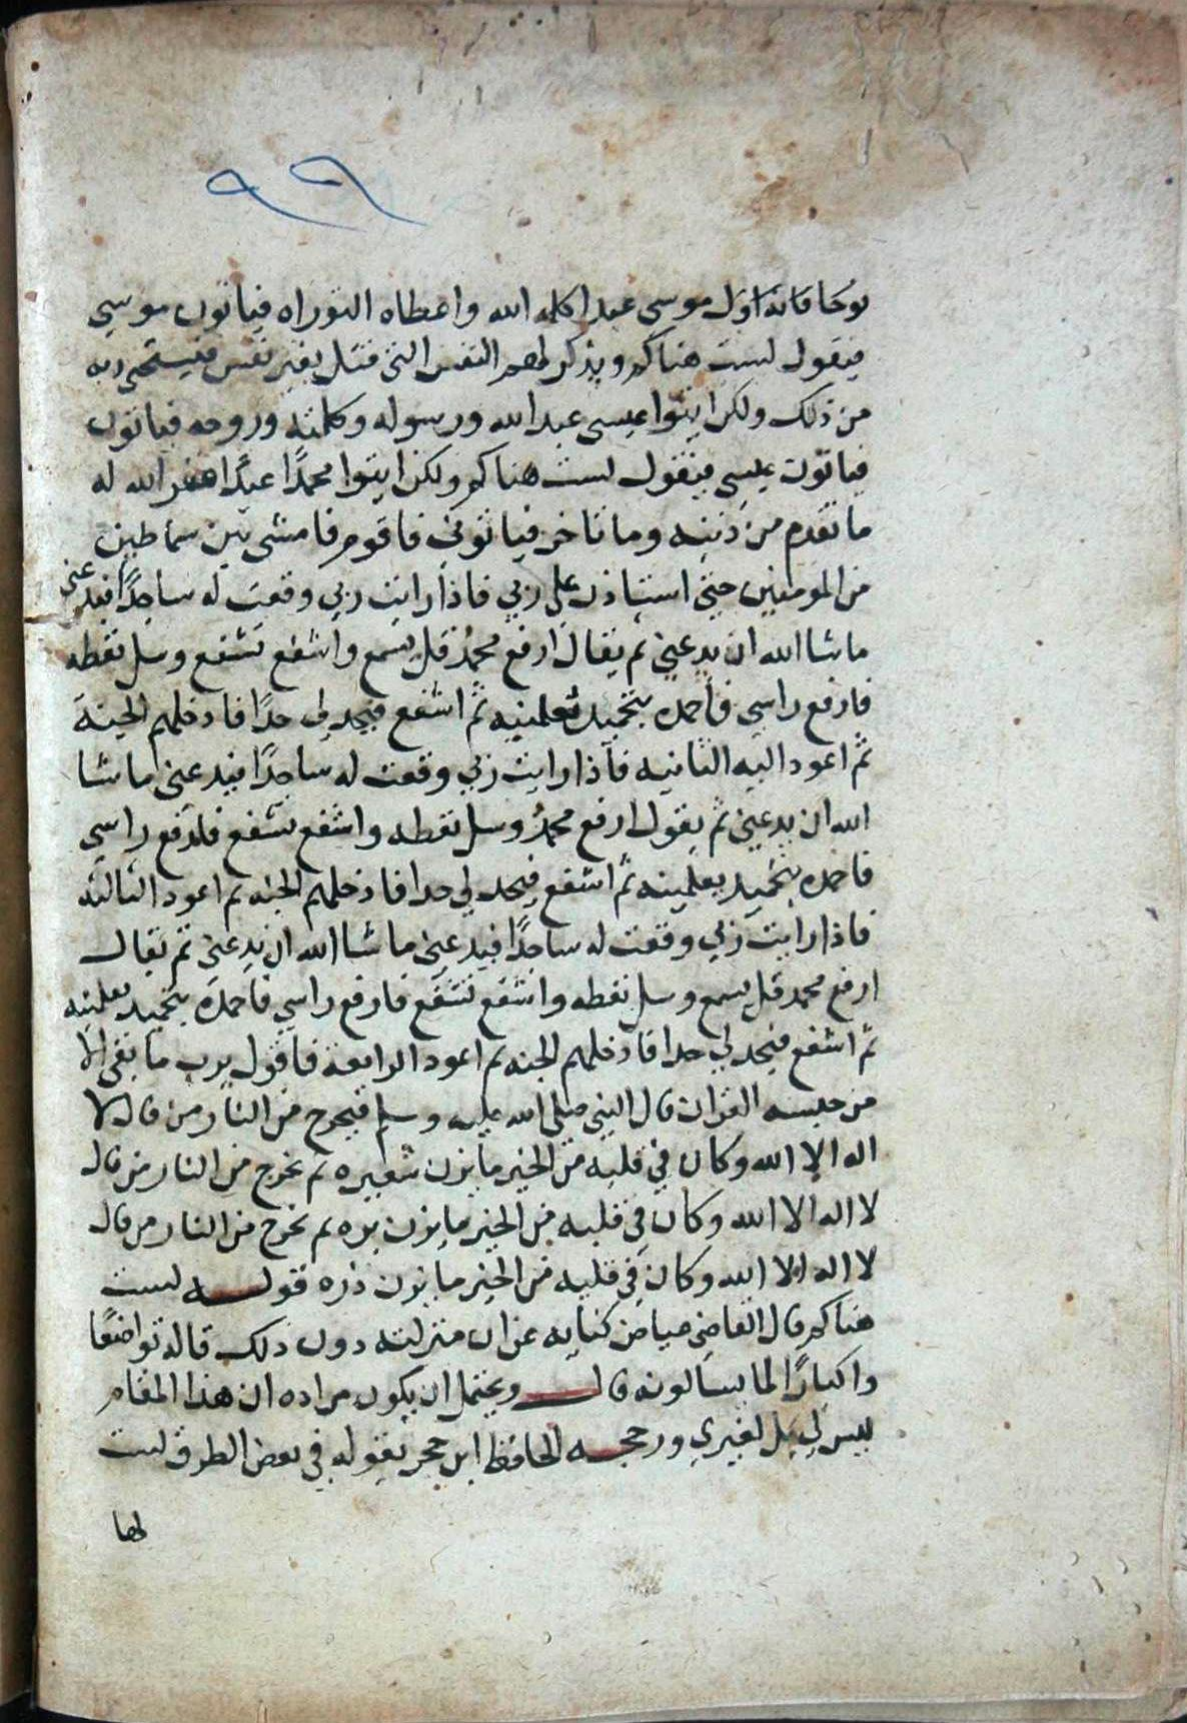 ٩٩
نوحا فانه اول موسى عبدا كلمه الله واعطاه التوراه فياتون موسى
فيقول لست هناكم ويذكر لهم النفس التي قتل بغير نفس فيستحي ربه
من ذلك ولكن ايتوا عيسى عبد الله ورسوله وكلمته وروحه فياتون
فياتون عيسى فيقول لست هناكم ولكن ايتوا محمدًا عبدًا غفر الله له
ما تقدم من ذنبه وما تاخر فياتوني فاقوم فامشي بين سماطين
من المومنين حتى استاذن على ربي فاذا رايت ربي وقعت له ساجدًا فيدعني
ما شا الله ان يدعني ثم يقال ارفع محمد قل يسمع واشفع تشفع وسل تعطه
فارفع راسي فاحمده بتحميد تعلمنيه ثم اشفع فيحد لي حدًا فادخلهم الجنة
ثم اعود اليه الثانيه فاذا رايت ربي وقعت له ساجدًا فيدعني ما شا
الله ان يدعني ثم يقول ارفع محمدُ وسل تعطه واشفع تشفع فارفع راسي
فاحمده بتحميد يعلمنيه ثم اشفع فيحد لي حدا فادخلهم الجنه ثم اعود الثالثه
فاذا رايت ربي وقعت له ساجدًا فيدعني ما شا الله ان يدعني ثم يقال
ارفع محمد قل يسمع وسل تعطه واشفع تشفع فارفع راسي فاحمده بتحميد يعلمنيه
ثم اشفع فيحد لي حدا فادخلهم الجنه ثم اعود الرابعة فاقول يرب ما بقي الا
من حبسه القران قال النبي صلى الله عليه وسلم فيخرج من النار من قال لا
اله الا الله وكان في قلبه من الخير ما يزن شعيره ثم يخرج من النار من قال
لا اله الا الله وكان في قلبه من الخير ما يزن بره ثم يخرج من النار من قال
لا اله الا الله وكان في قلبه من الخير ما يزن ذره قوله لست
هناكم قال القاضي عياض كنايه عن ان منزلته دون ذلك قاله تواضعًا
واكبارًا لما يسالونه قال ويحتمل ان يكون مراده ان هذا المقام
ليس لي بل لغيري ورجحه الحافظ ابن حجر بقوله في بعض الطرق لست
لها